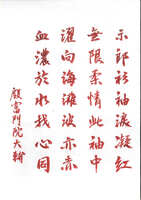 示郎衫袖淚凝紅
無限柔情此袖中
濯向海灘波亦赤
血濃於水我心同
顧富鬥院大韓